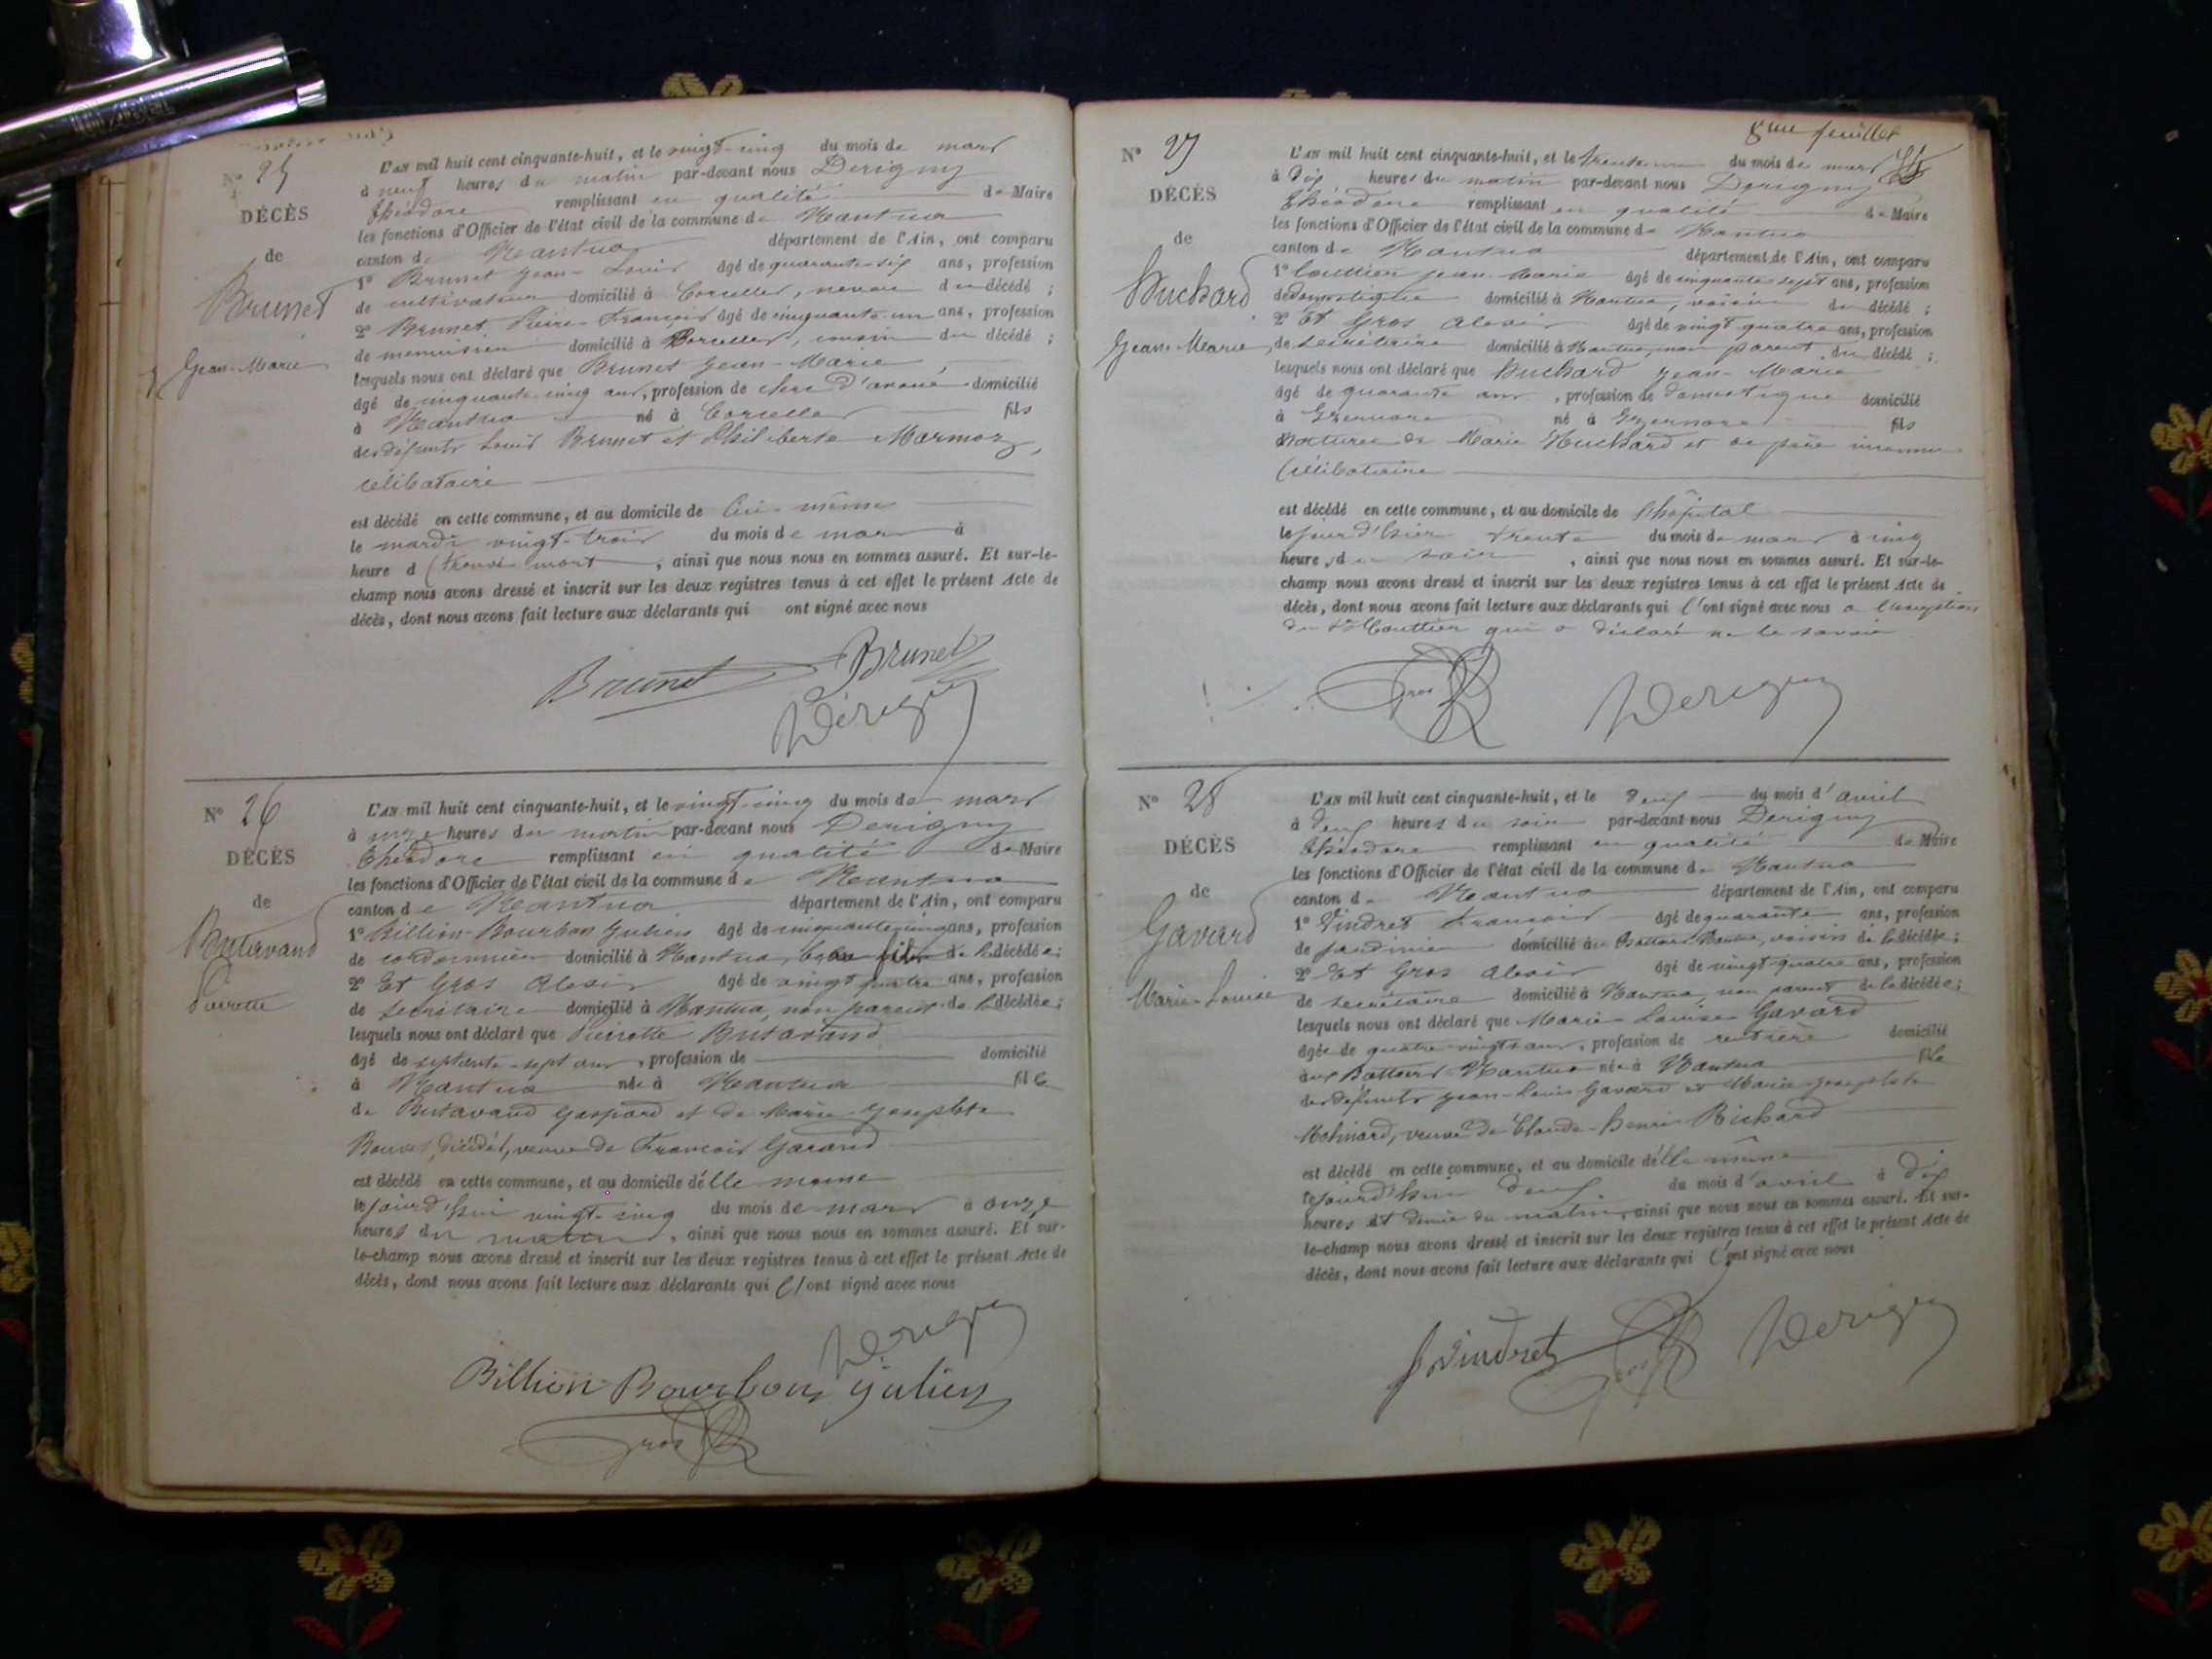 N° 25
DÉCÈS
de
Brunet
Jean-Marie
L'AN mil huit cent cinquante-huit, et le vingt-cinq du mois de mars
à neuf heures du matin par-devant nous Derigny
Théodore remplissant en qualité de Maire
les fonctions d'Officier de l'état civil de la commune de Nantua
canton de Nantua département de l'Ain, ont comparu
1° Brunet Jean-Louis âgé de quarante-six ans, profession
de cultivateur domicilié à Corcelles, neveu du décédé ;
2° Brunet, Pierre-François âgé de cinquante-un ans, profession
de menuisier domicilié à Corcelles, cousin du décédé ;
lesquels nous ont déclaré que Brunet Jean-Marie
âgé de cinquante-cinq ans, profession de clerc d'avoué domicilié
à Nantua né à Corcelles fils
des défunts Louis Brunet et Philiberte Marmoz,
célibataire
est décédé en cette commune, et au domicile de lui-même
le mardi vingt-trois du mois de mars à
heure d (trouvé mort , ainsi que nous nous en sommes assuré. Et sur-le-
champ nous avons dressé et inscrit sur les deux registres tenus à cet effet le présent Acte de
décès, dont nous avons fait lecture aux déclarants qui ont signé avec nous
Brunet Brunet
Dérigny
N° 26
DÉCÈS
de
Butavand
Pierrette
L'AN mil huit cent cinquante-huit, et le vingt-cinq du mois de mars
à onze heures du matin par-devant nous Derigny
Théodore remplissant en qualité de Maire
les fonctions d'Officier de l'état civil de la commune de Nantua
canton de Nantua département de l'Ain, ont comparu
1° Billion-Bourbon Julien âgé de cinquante-cinq ans, profession
de cordonnier domicilié à Nantua, beau fils de la décédée ;
2° Et Gros Alexis âgé de vingt quatre ans, profession
de secrétaire domicilié à Nantua, non parent de la décédée ;
lesquels nous ont déclaré que Pierrette Butavand
âgé de septante-sept ans, profession de domicilié
à Nantua née à Nantua fille
de Butavand Gaspard et de Marie Josephte
Bouvet, décédés, veuve de François Gavand
est décédé en cette commune, et au domicile d'elle meme
le jourd'hui vingt-cinq du mois de mars à onze
heures du matin, ainsi que nous nous en sommes assuré. Et sur-
le-champ nous avons dressé et inscrit sur les deux registres tenus à cet effet le présent Acte de
décès, dont nous avons fait lecture aux déclarants qui l'ont signé avec nous
Derigny
Billion-Bourbon Julien
Gros
8me feuillet
N° 27
DÉCÈS
de
Huchard
Jean-Marie
L'AN mil huit cent cinquante-huit, et le trente-un du mois de mars
à dix heures du matin par-devant nous Derigny
Théodore remplissant en qualité de Maire
les fonctions d'Officier de l'état civil de la commune de Nantua
canton de Nantua département de l'Ain, ont comparu
1° Couttier Jean-Marie âgé de cinquante sept ans, profession
de domestique domicilié à Nantua, voisin du décédé ;
2° Et Gros Alexis âgé de vingt quatre ans, profession
de secrétaire domicilié à Nantua, non parent du décédé ;
lesquels nous ont déclaré que Huchard Jean-Marie
âgé de quarante ans, profession de domestique domicilié
à Izernore né à Izernore fils
naturel de Marie Huchard et de père inconnu
célibataire
est décédé en cette commune, et au domicile de l'hôpital
le jour d'hier trente du mois de mars à cinq
heures du soir, ainsi que nous nous en sommes assuré. Et sur-le-
champ nous avons dressé et inscrit sur les deux registres tenus à cet effet le présent Acte de
décès, dont nous avons fait lecture aux déclarants qui l'ont signé avec nous à l'exception
du sr Couttier qui a déclaré ne le savoir
Gros Derigny
N° 28
DÉCÈS
de
Gavard
Marie-Louise
L'AN mil huit cent cinquante-huit, et le deux du mois d'avril
à deux heures du soir par-devant nous Derigny
Théodore remplissant en qualité de Maire
les fonctions d'Officier de l'état civil de la commune de Nantua
canton de Nantua département de l'Ain, ont comparu
1° Vindret François âgé de quarante ans, profession
de jardinier domicilié au Battoir Nantua, voisin de la décédée ;
2° Et Gros Alexis âgé de vingt quatre ans, profession
de secrétaire domicilié à Nantua, non parent de la décédée ;
lesquels nous ont déclaré que Marie-Louise Gavard
âgée de quatre vingts ans, profession de rentière domicilié
aux Battoirs Nantua née à Nantua fille
des défunts Jean-Louis Gavard et Marie-Josephte
Molinard, veuve de Claude-Henri Richard
est décédé en cette commune, et au domicile d'elle même
le jourd'hui deux du mois d'avril à dix
heures et demie du matin, ainsi que nous nous en sommes assuré. Et sur-
le-champ nous avons dressé et inscrit sur les deux registres tenus à cet effet le présent Acte de
décès, dont nous avons fait lecture aux déclarants qui l'ont signé avec nous
f. Vindret Gros Derigny